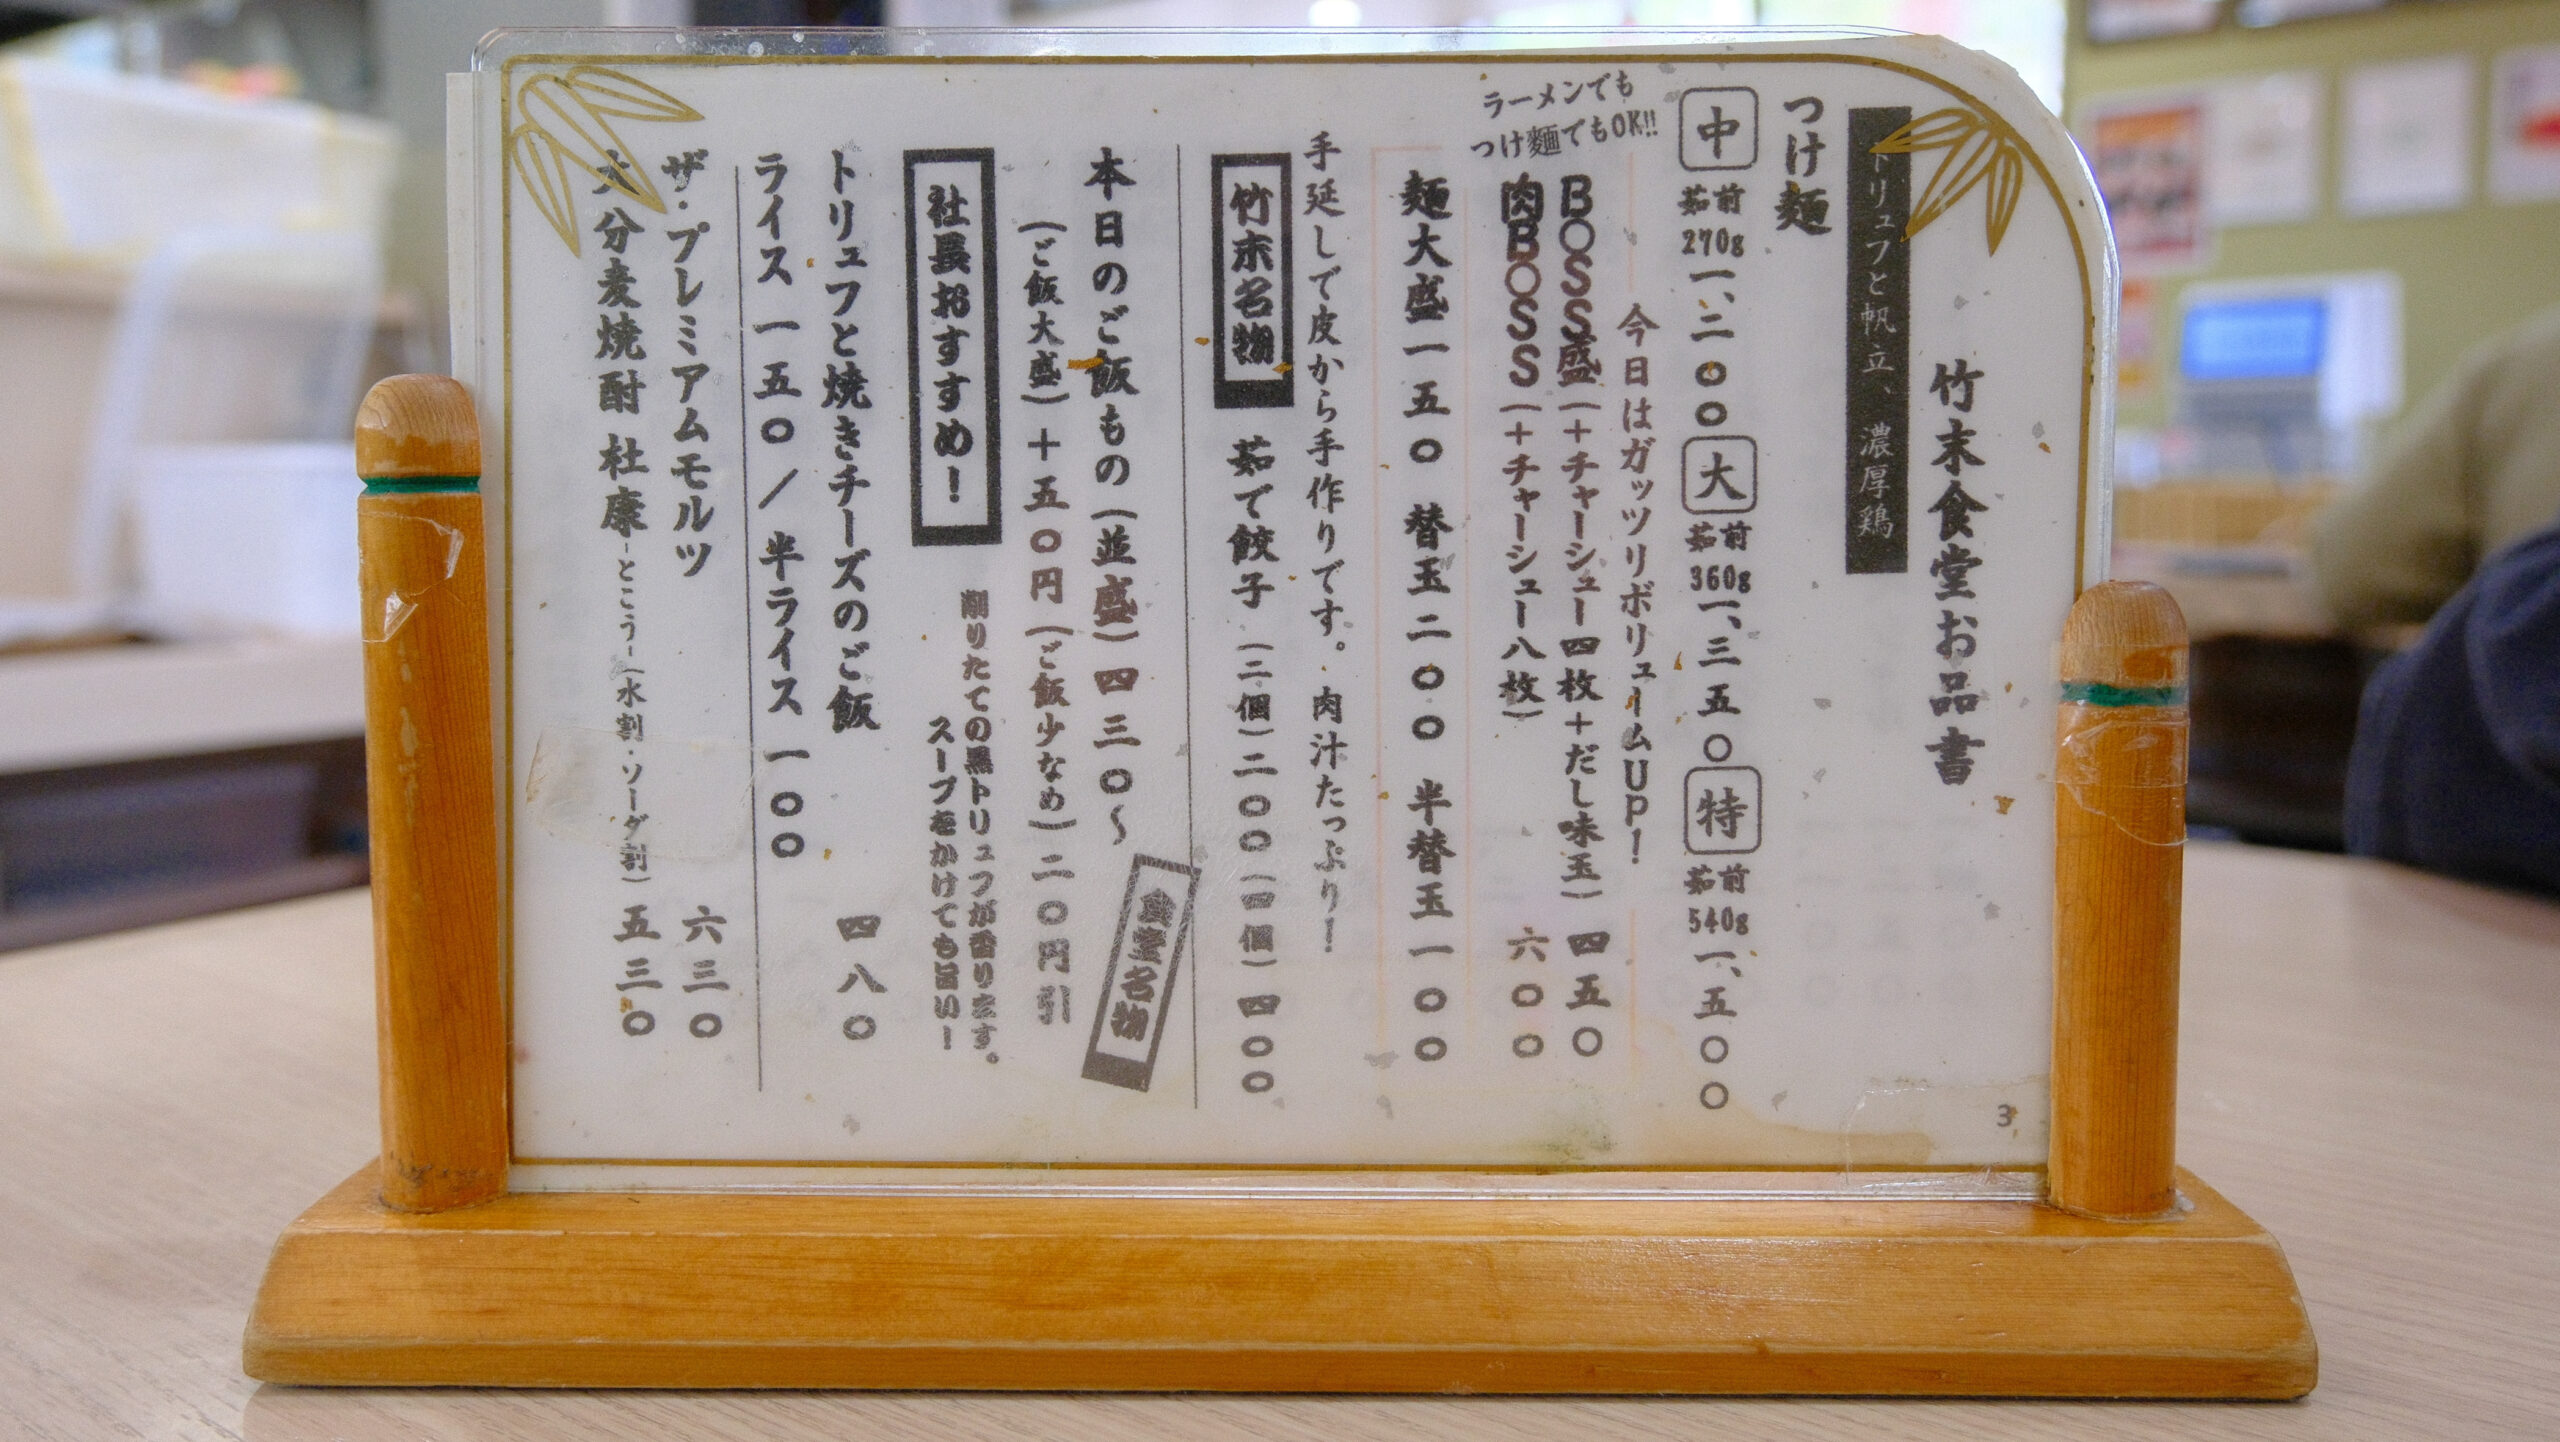 竹末食堂お品書
トリュフと帆立、濃厚鶏
つけ麺
中 茹前270g 一、二〇〇 大 茹前360g 一、三五〇 特 茹前540g 一、五〇〇
ラーメンでも
つけ麺でもOK!!
今日はガッツリボリュームUP！
BOSS盛（＋チャーシュー四枚＋だし味玉）四五〇
肉BOSS（＋チャーシュー八枚） 六〇〇
麺大盛一五〇 替玉二〇〇 半替玉一〇〇
手延しで皮から手作りです。肉汁たっぷり！
竹末名物 茹で餃子（二個）二〇〇（四個）四〇〇
本日のご飯もの（並盛）四三〇〜
食堂名物
（ご飯大盛）＋五〇円（ご飯少なめ）二〇円引
社長おすすめ！
削りたての黒トリュフが香ります。
スープをかけても旨い！
トリュフと焼きチーズのご飯 四八〇
ライス一五〇／半ライス一〇〇
ザ・プレミアムモルツ 六三〇
大分麦焼酎 杜康-とこう-（水割・ソーダ割）五三〇
3